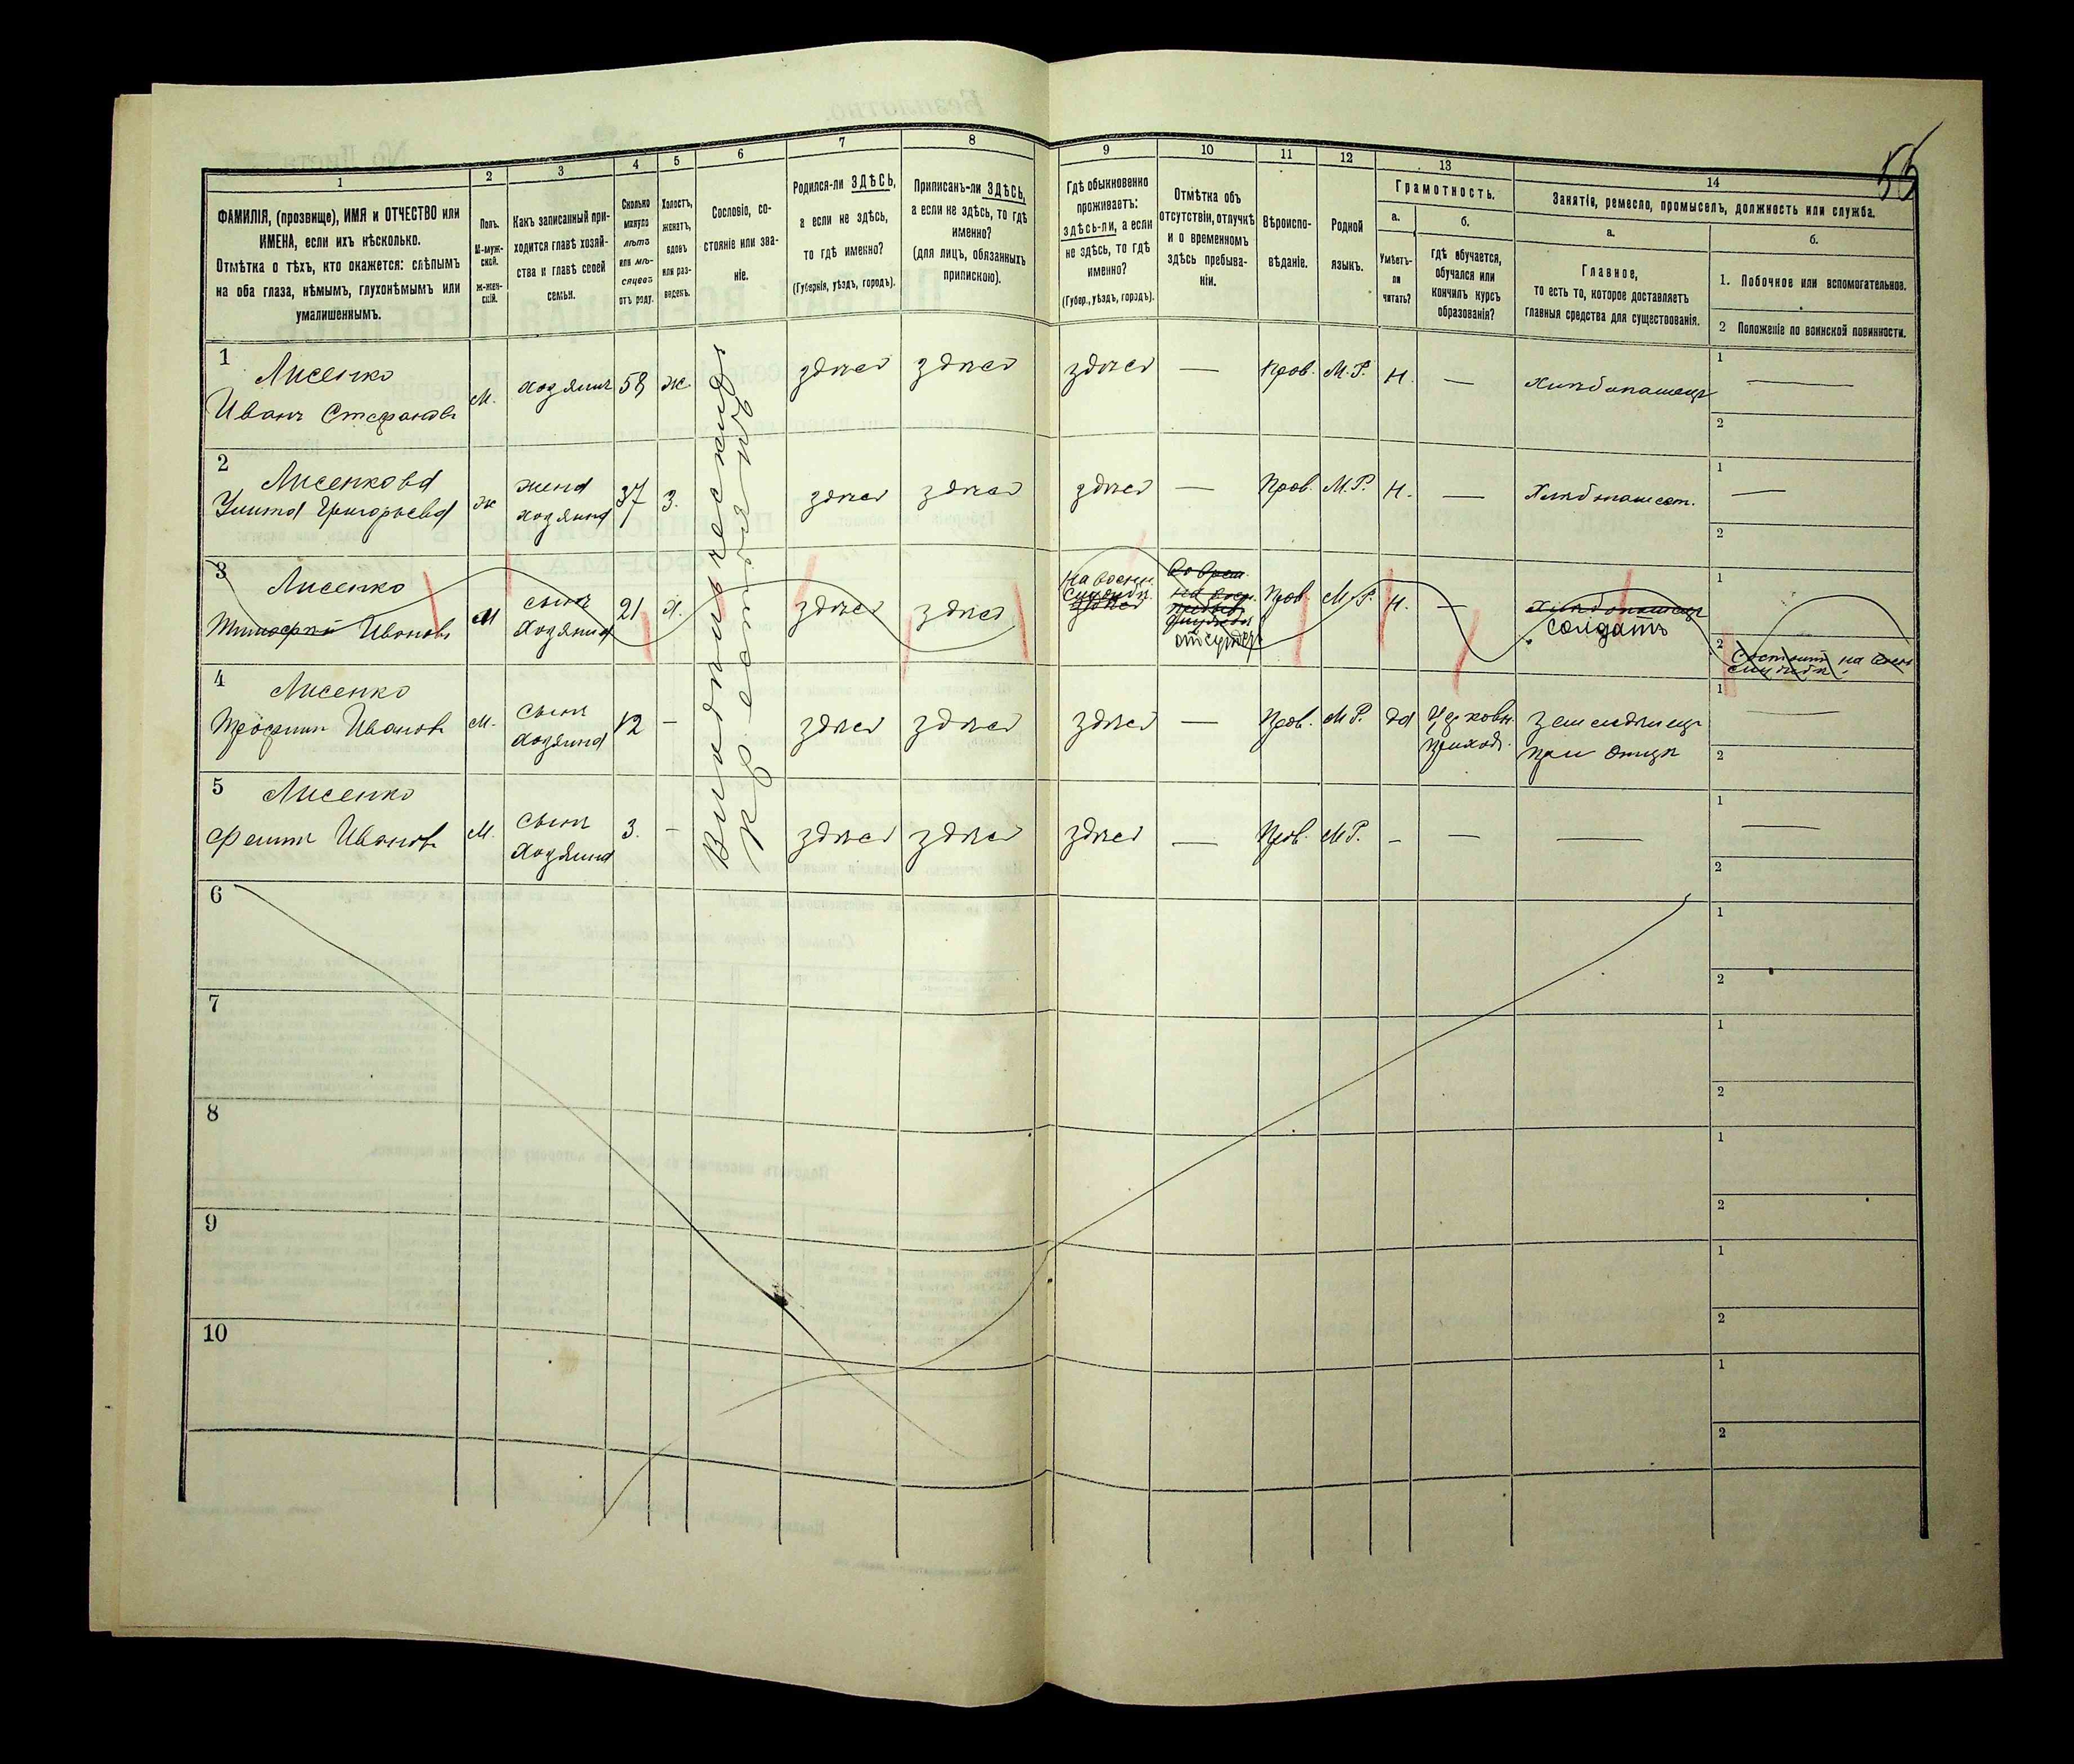 55
1
2
3
4
5
6
7
8
9
10
11
12
13
14
ФАМИЛІЯ, (прозвище), ИМЯ и ОТЧЕСТВО или
ИМЕНА, если ихъ нѣсколько.
Отмѣтка о тѣхъ, кто окажется: слѣпымъ
на оба глаза, нѣмымъ, глухонѣмымъ или
умалишеннымъ.
Полъ.
М-муж-
ской.
Ж-жен-
скій.
Какъ записанный при-
ходится главѣ хозяй-
ства и главѣ своей
семьи.
Сколько
минуло
лѣтъ
или мѣ-
сяцевъ
отъ роду.
Холостъ,
женатъ,
вдовъ
или раз-
веденъ.
Сословіе, со-
стояніе или зва-
ніе.
Родился-ли ЗДѢСЬ,
а если не здѣсь,
то гдѣ именно?
(Губернія, уѣздъ, городъ).
Приписанъ-ли ЗДѢСЬ,
а если не здѣсь, то гдѣ
именно?
(для лицъ, обязанныхъ
припискою).
Гдѣ обыкновенно
проживаетъ:
здѣсь-ли, а если
не здѣсь, то гдѣ
именно?
(Губер., уѣздъ, городъ).
Отмѣтка объ
отсутствіи, отлучкѣ
и о временномъ
здѣсь пребыва-
ніи.
Вѣроиспо-
вѣданіе.
Родной
языкъ.
Грамотность.
а.
Умѣетъ-
ли
читать?
б.
гдѣ обучается,
обучался или
кончилъ курсъ
образованія?
Занятіе, ремесло, промыселъ, должность или служба.
а.
Главное,
то есть то, которое доставляетъ
главныя средства для существованія.
б.
1. Побочное или вспомогательное.
2 Положеніе по воинской повинности.
1
Лисенко
Иванъ Стефановъ
М.
хозяинъ
58
ж.
здѣсь
здѣсь
здѣсь
—
Прав.
М.Р.
Н.
—
хлѣбопашецъ
1
—
2
Крестьянинъ
2
Лисенкова
Улита Григорьева
ж
жена
хозяина
37
З.
здѣсь
здѣсь
здѣсь
—
Прав.
М.Р.
Н.
—
1
—
2
3
Лисенко
Тимофей Ивановъ
М
сынъ
хозяина
21
х.
здѣсь
здѣсь
На воен.
службѣ
здѣсь
отсутст
Прав.
М.Р.
Н.
—
хлѣбопашецъ
солдатъ
1
2
Состоитъ на воен
службѣ.
4
Лисенко
Трофимъ Ивановъ
М.
сынъ
хозяина
12
-
здѣсь
здѣсь
здѣсь
—
Прав.
М.Р.
да
Церковн.
приход.
земледѣлецъ
при отцѣ
1
—
2
5
Лисенко
Филипъ Ивановъ
М.
сынъ
хозяина
3.
-
здѣсь
здѣсь
здѣсь
—
Прав.
М.Р.
-
—
—
1
—
2
6
1
2
7
1
2
8
1
2
9
1
2
10
1
2